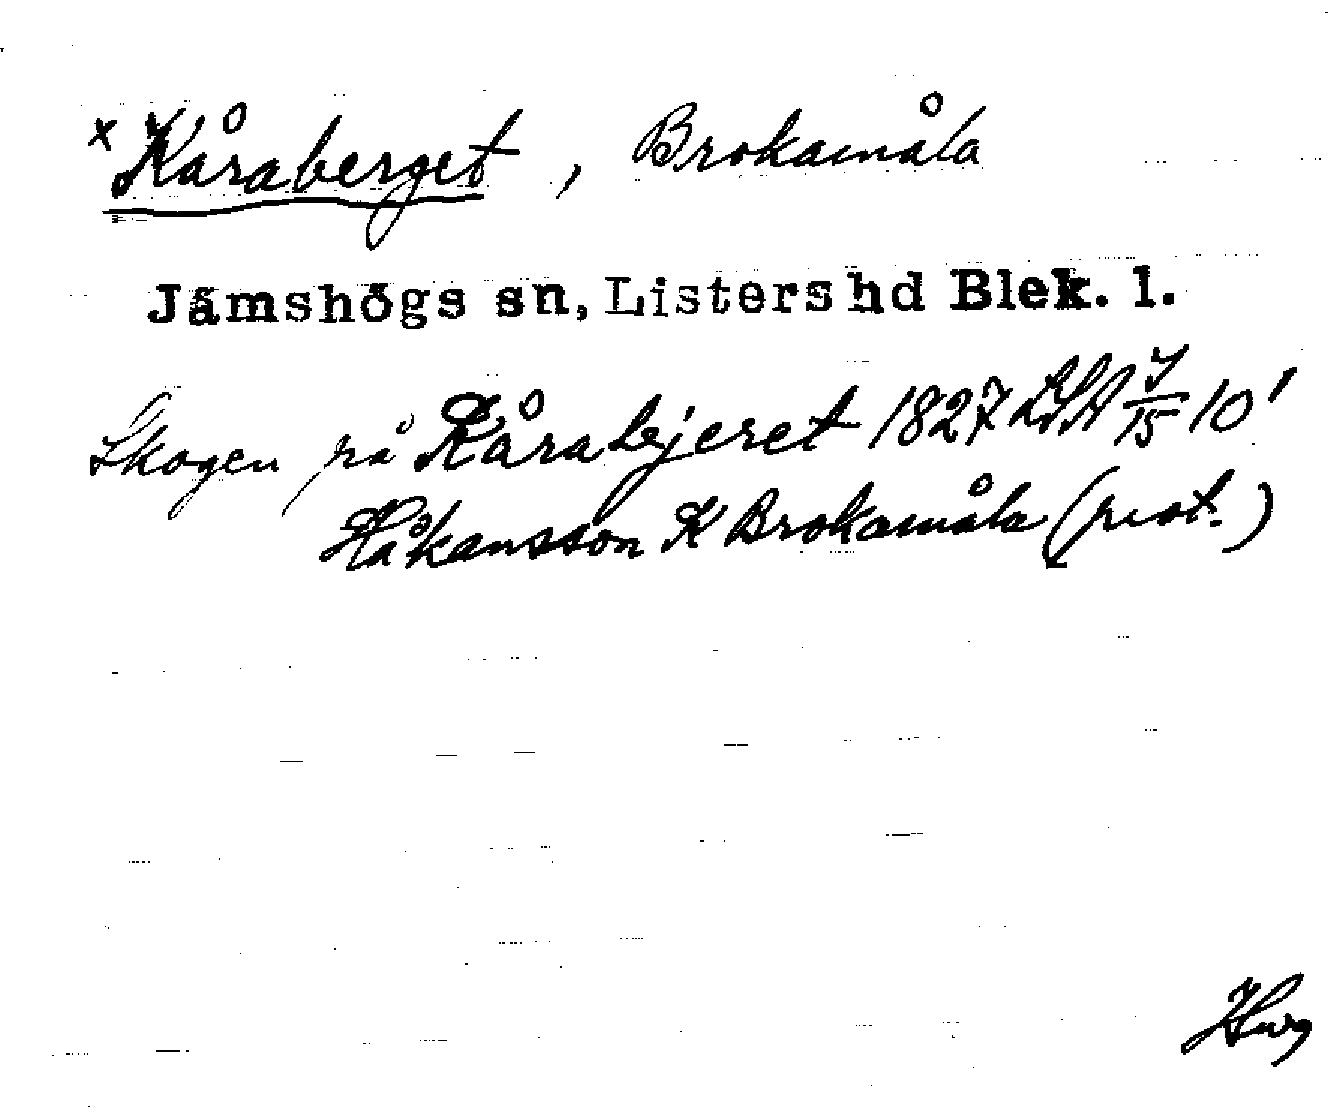 x Kåraberget, Brokamåla
Jämshögs sn, Listers hd Blek. l.
Skogen på Kårabjeret 1827 LSA J/15 10'
Håkansson K Brokamåla (prot.)